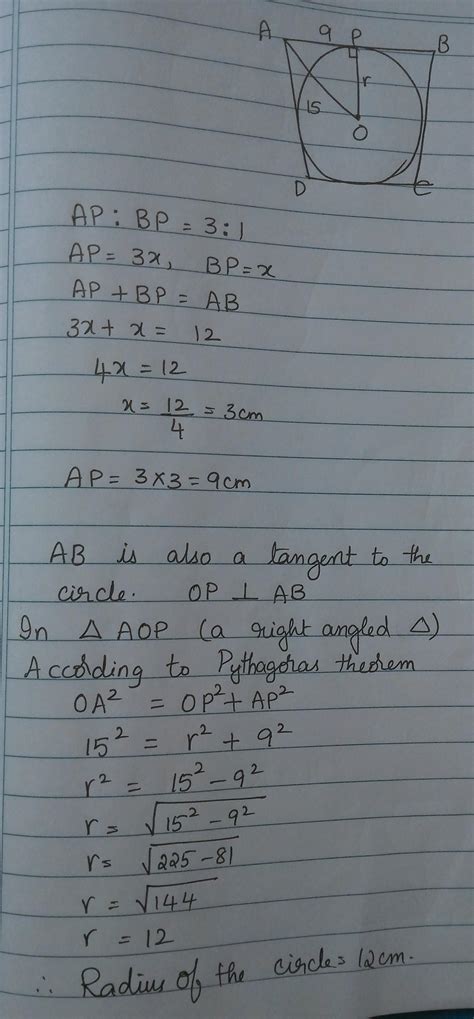 A 9 P B
r
15
O
D C
AP : BP = 3 : 1
AP = 3x, BP = x
AP + BP = AB
3x + x = 12
4x = 12
x = 12/4 = 3cm
AP = 3 × 3 = 9cm
AB is also a tangent to the
circle. OP ⊥ AB
In △ AOP (a right angled △)
According to Pythagoras theorem
OA² = OP² + AP²
15² = r² + 9²
r² = 15² - 9²
r = √15² - 9²
r = √225 - 81
r = √144
r = 12
∴ Radius of the circle = 12cm.